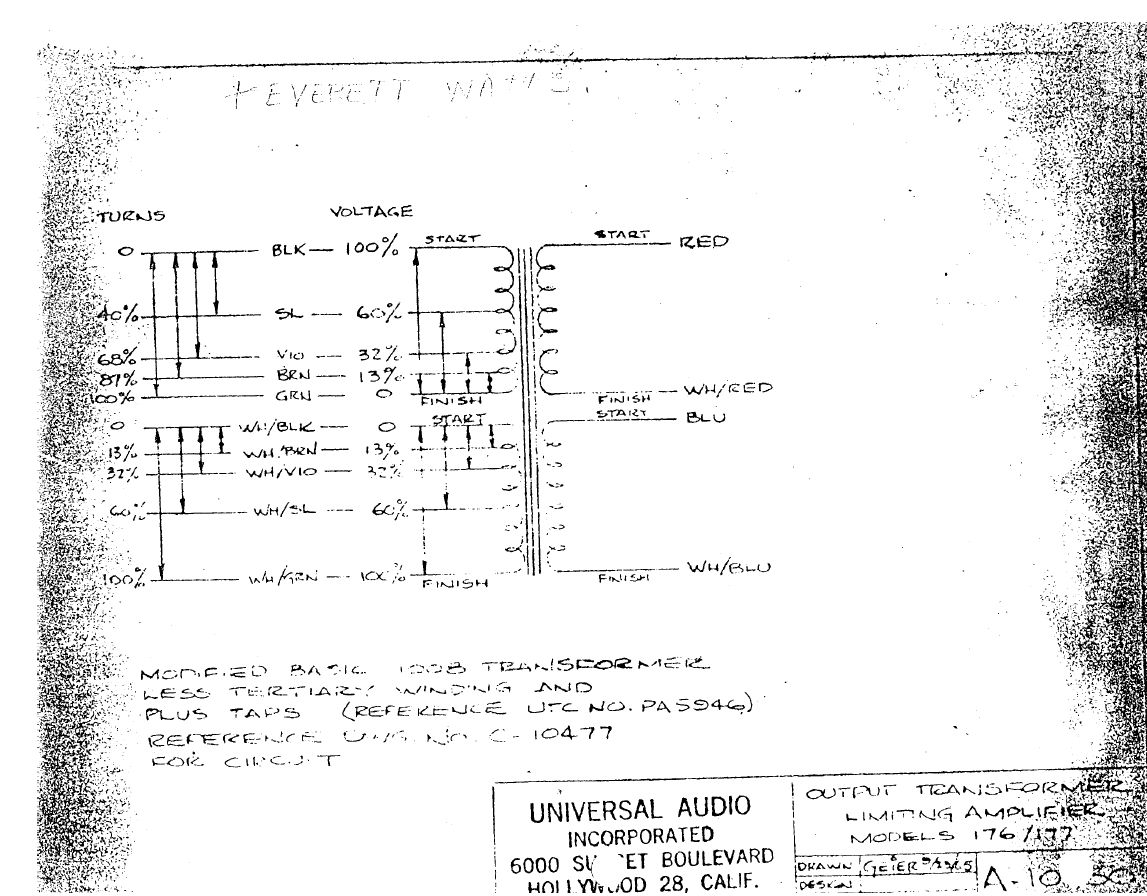 + EVERETT WATTS.
TURNS VOLTAGE
0 BLK 100% START START RED
40% SL 60%
68% VIO 32%
87% BRN 13%
100% GRN 0 FINISH FINISH WH/RED
0 WH/BLK 0 START START BLU
13% WH/BRN 13%
32% WH/VIO 32%
60% WH/SL 60%
100% WH/GRN 100% FINISH FINISH WH/BLU
MODIFIED BASIC 1008 TRANSFORMER
LESS TERTIARY WINDING AND
PLUS TAPS (REFERENCE UTC NO. PA5946)
REFERENCE DWG. NO. C-10477
FOR CIRCUIT
UNIVERSAL AUDIO
INCORPORATED
6000 SUNSET BOULEVARD
HOLLYWOOD 28, CALIF.
OUTPUT TRANSFORMER
LIMITING AMPLIFIER
MODELS 176/177
DRAWN GEIER
DESIGN
A-10